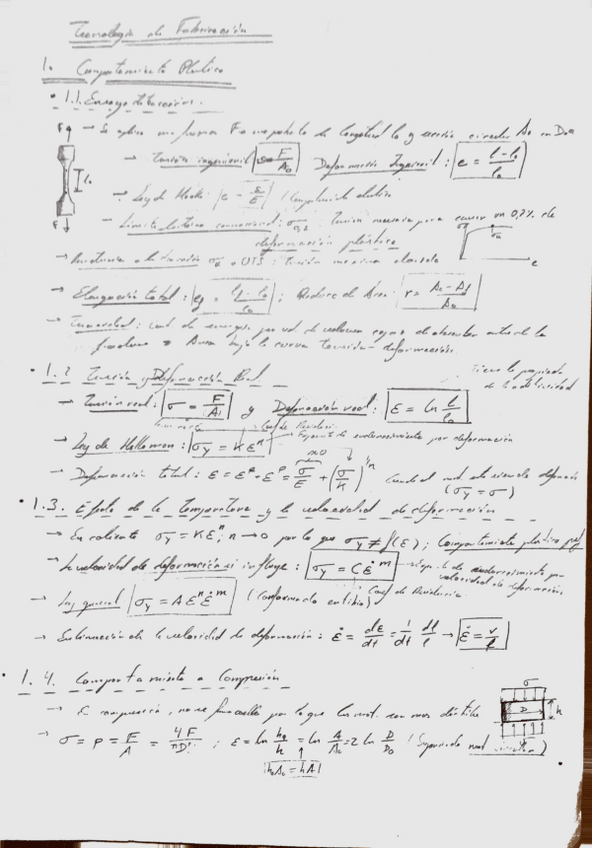 Tecnología de Fabricación
1. Comportamiento Plástico
1.1. Ensayo de tracción.
→ Se aplica una fuerza F a una probeta de longitud l₀ y sección circular A₀
→ Tensión ingenieril: s = F/A₀ Deformación Ingenieril: e = (l - l₀)/l₀
→ Ley de Hooke: (Comportamiento elástico
→ Límite elástico convencional: σ₀,₂ Tensión necesaria para causar un 0,2% de
deformación plástica
→ Resistencia a la tracción o UTS: Tensión máxima
→ Elongación total: ; Reducc. de Área: r = (A₀ - Af)/A₀
→ Tenacidad: cant. de energía por ud. de volumen capaz de absorber antes de la
fractura = Área bajo la curva tensión-deformación
Tiene la propiedad
de la aditividad
1.2 Tensión y Deformación Real
→ Tensión real: σ = F/A y Deformación real: ε = ln l/l₀
Coef. de Resistencia
→ Ley de Hollomon: σy = Kεⁿ Exponente de endurecimiento por deformación
≈0
→ Deformación total: ε = εᵉ + εᵖ = σ/E + (σ/K)^(1/n)
(σy = σ)
1.3. Efecto de la Temperatura y la velocidad de deformación
→ En caliente σy = Kεⁿ; n → 0 por lo que σy ≠ f(ε); Comportamiento plástico perf
→ La velocidad de deformación si influye: σy = Cε̇ᵐ → de endurecimiento por
velocidad de deformación
Coef. de Resistencia
→ Ley general σy = Aεⁿε̇ᵐ (Conformado en tibio)
→ Estimación de la velocidad de deformación: ε̇ = dε/dt = 1/dt dl/l → ε̇ = v/l
1.4. Comportamiento a Compresión
→ En compresión, no se forma cuello por lo que los mat. son más dúctiles
→ σ = p = F/A = 4F/πD²; ε = ln h₀/h = ln A/A₀ = 2 ln D/D₀
h₀A₀ = hA
σ
D
h